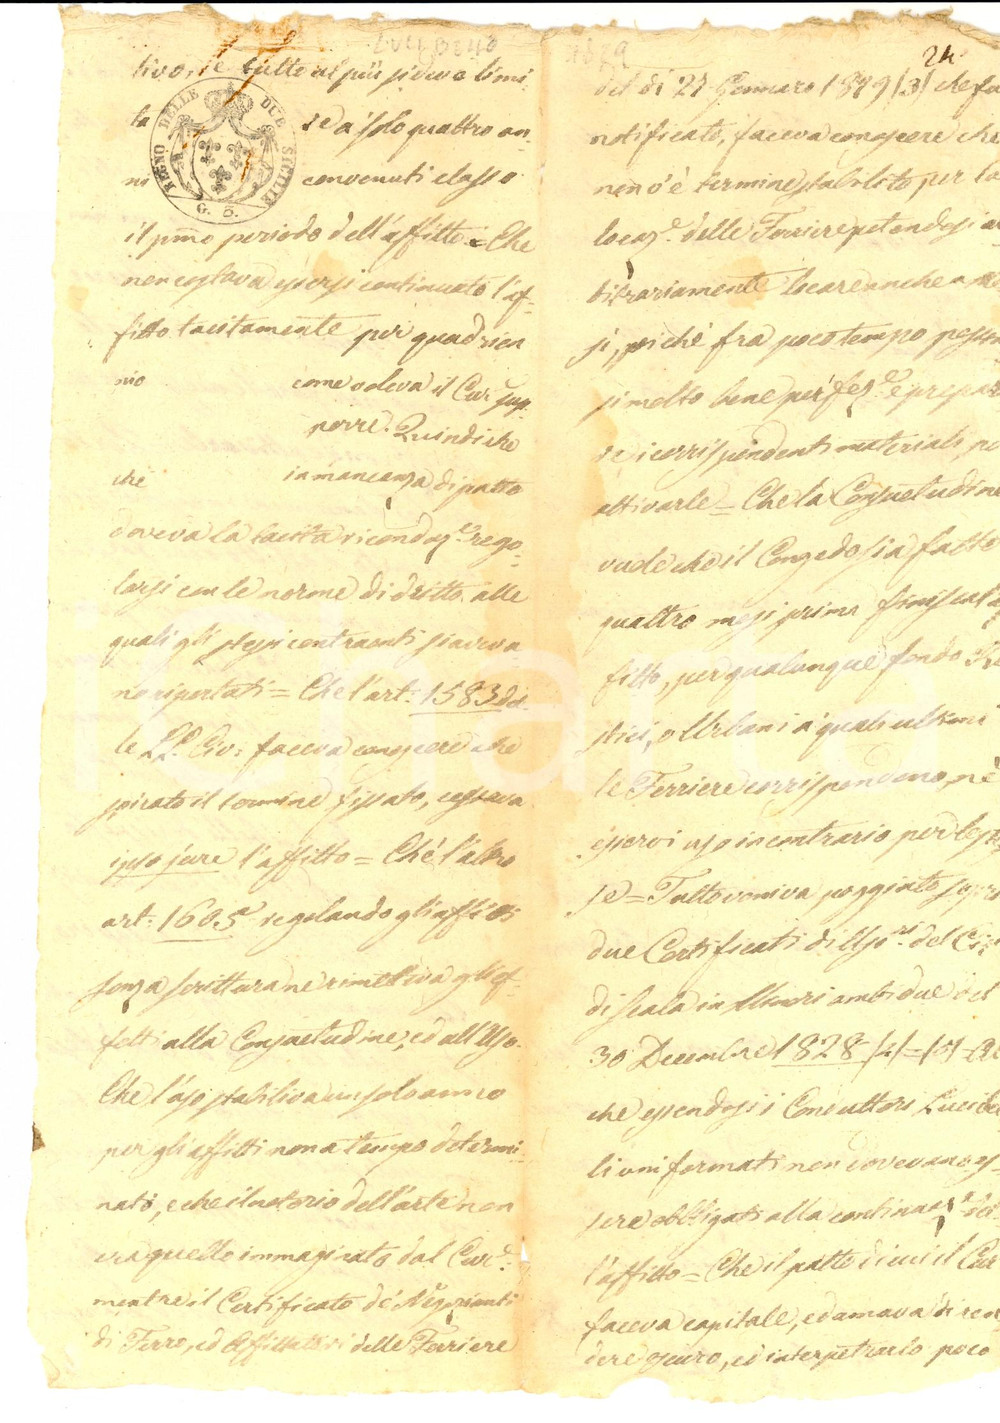 tivo, se tutto al più si deve limi-
ta re a solo quattro an-
ni convenuti classo
il pmo periodo dell'affitto = Che
non costava essersi continuato l'af-
fitto tacitamente per quadrien
nio come voleva il Cav sup-
porre. Quindi che
che in mancanza di patto
doveva la tacita riconduz.e rego-
larsi con le norme di dritto alle
quali gli stessi contraenti si aveva
no riportati = Che l'art: 1583 del
le LL. Civ: faceva conoscere che
spirato il termine fissato, cessava
ipso jure l'affitto = Che l'altro
art: 1605 regolando gli affitti
senza scrittura ne rimetteva gli ef-
fetti alla Consuetudine, ed all'Uso.
Che l'uso stabiliva un solo anno
per gli affitti non a tempo determi-
nato, e che il notorio dell'arte non
era quello immaginato dal Cav.e
mentre il Certificato de' Negozianti
di Ferro, ed Affittatori delle Ferriere
REGNO DELLE DUE SICILIE
G. 6.
24
del dì 27 Gennaro 1829 (3) che fu
notificato, faceva conoscere che
non v'è termine stabilito per la
locaz.e delle Ferriere potendosi ar
bitrariamente locare anche a me
si, poiché fra poco tempo posson
si molto bene per fez.e e prepara
re i corrispondenti materiali per
attivarle = Che la Consuetudine
vuole che il Congedo sia fatto
quattro mesi prima finisca l'af
fitto, per qualunque fondo Ru
stici, o Urbani a' quali ultimi
le Ferriere corrispondono, nè
esservi uso in contrario per le stes
se = Tutto veniva poggiato sopra
due Certificati di
di Scala in Minori ambidue del
30 Decembre 1828 (4) = (5)
che essendosi i Conduttori
li uniformati non dovevano es-
sere obbligati alla continuaz.e del-
l'affitto = Che il patto di cui il Cav
faceva capitale, ed amava di ren
dere oscuro, ed interpetrarlo poco